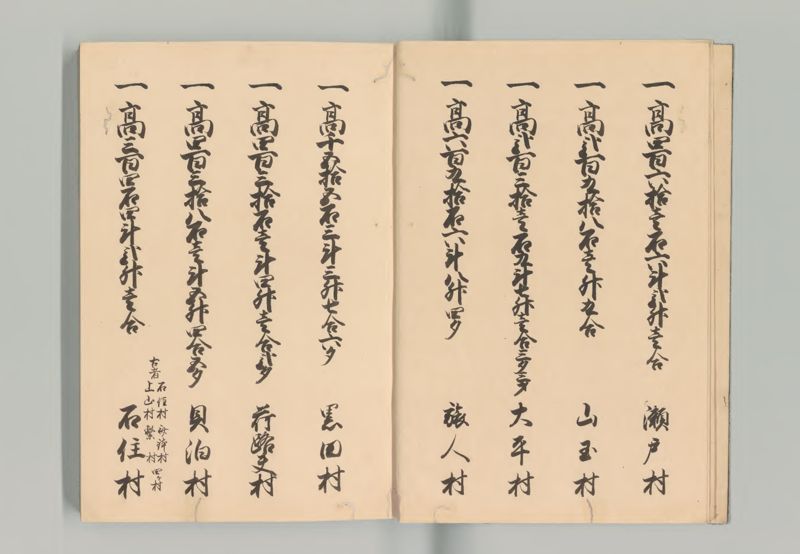 一高四百六拾壱石六斗弐升壱合 瀬戸村
一高弐百九拾八石壱升九合 山玉村
一高弐百三拾壱石九斗七升壱合 大平村
一高六百九拾石六斗八升四夕 旅人村
一高千五拾五石三斗三升七合六夕 黒田村
一高四百三拾石壱斗四升壱合弐夕 荷路夫村
一高四百三拾八石壱斗五升四合五夕 貝泊村
古者 石住村
上山村 繋村 四ヶ村
一高三百四石四斗弐升壱合 石住村